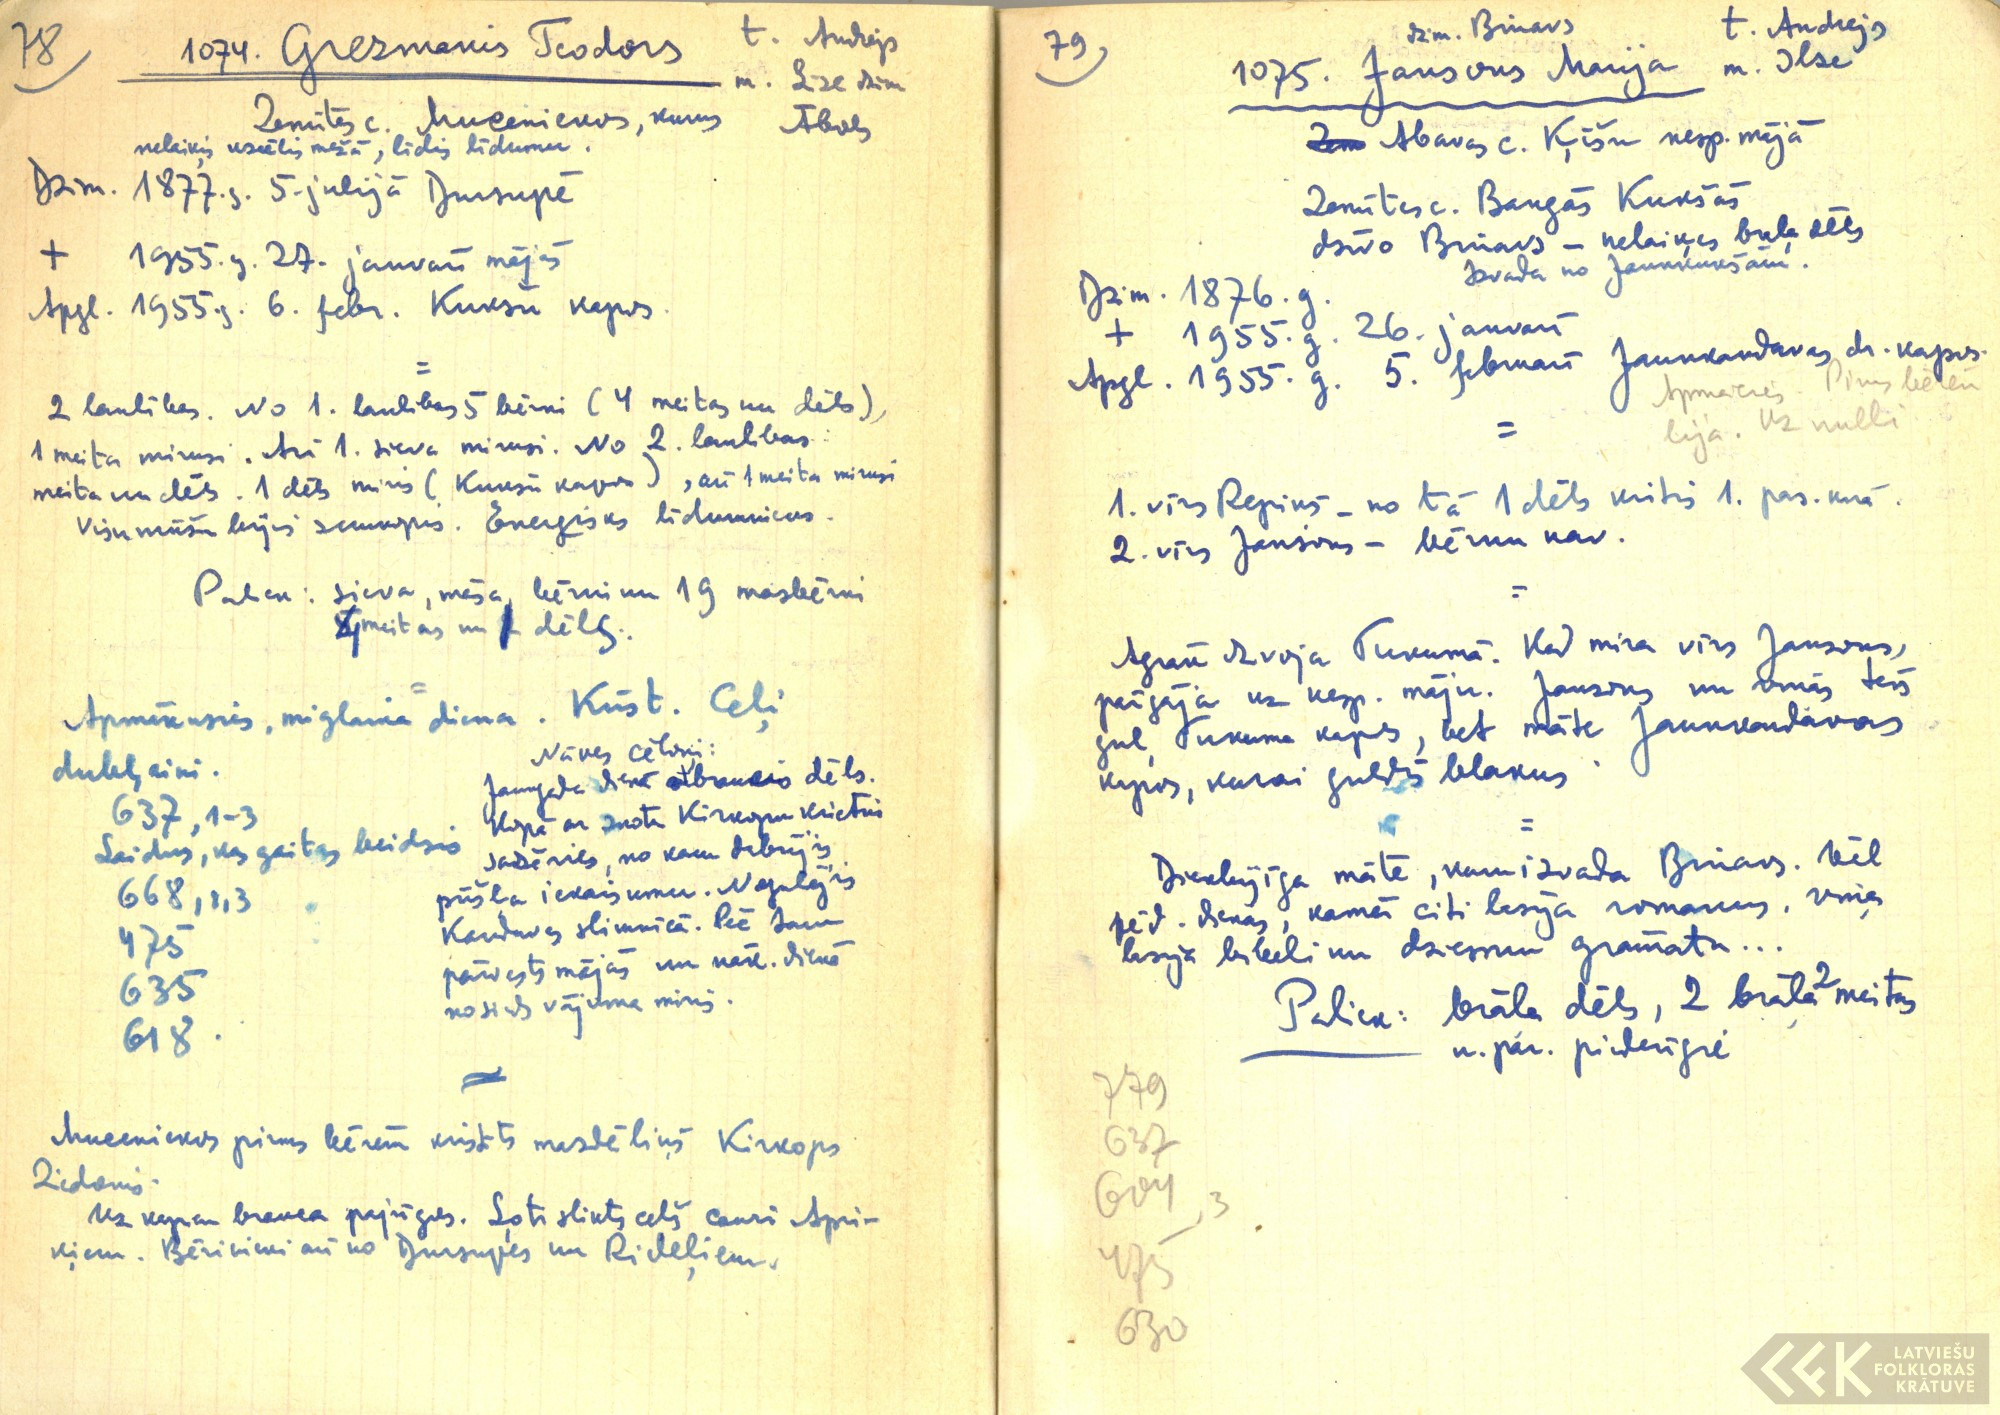 78
1074. Grezmanis Teodors
t. Andrejs
m. Līze dzim
Ābols
Zemītes c. Muceniekos, kurus
nelaiķis uzcēlis mežā, līdis līdumu.
Dzim. 1877.g. 5. jūlijā Dursupē
+ 1955.g. 27. janvarī mājās
Apgl. 1955.g. 6. febr. Kukšu kapos.
=
2 laulības. No 1. laulības 5 bērni (4 meitas un dēls),
1 meita mirusi. Arī 1. sieva mirusi. No 2. laulības:
meita un dēls. 1 dēls miris (Kukšu kapos), arī 1 meita mirusi
Visu mūžu bijis zemkopis. Enerģisks līdumnieks.
Paliek: sieva, māsa, bērni un 19 mazbērni
meitas un dēls.
=
Apmākusies, miglaina diena. Kūst. Ceļi
dubļaini.
637, 1-3
Laidus, kas gaitas beidzis
668, 1,3
475
635
618.
Nāves cēloņi:
Jaungada dienā atbraucis dēls.
Kopā ar znotu Kirkopu krietni
sadzēries, no kam dabūjis
pūšļa iekaisumu. Nogulējis
Kandavas slimnīcā. Pēc tam
pārvests mājās un nāk. dienā
no sirds vājuma miris.
=
Muceniekos pirms bērēm kristīts mazdēliņš Kirkops
Ziedonis.
Uz kapiem brauca pajūgos. Ļoti slikts ceļš cauri Apri-
ķiem. Bērinieki arī no Dursupes un Rideļiem.
79
dzim. Briņavs
1075. Jansons Marija
t. Andrejs
m. Ilze
Abavas c. Ķīšu nesp. mājā
Zemītes c. Bangās Kukšās
dzīvo Briņavs – nelaiķes brāļa dēls
Izvada no Jaunkukšām.
Dzim. 1876.g.
+ 1955.g. 26. janvarī
Apgl. 1955.g. 5. februarī Jaunkandavas dr. kapos.
Apmācies. Pirms bērēm
lija. Uz nulli
=
1. vīrs Repiņš – no tā 1 dēls kritis 1. pas. karā.
2. vīrs Jansons – bērnu nav.
=
Agrāk dzīvoja Tukumā. Kad mira vīrs Jansons,
pārgāja uz nesp. māju. Jansons un viņas tēvs
guļ Tukuma kapos, bet māte Jaunkandavas
kapos, kurai guldīs blakus
=
Dievbijīga māte, kam izvada Briņavs. Vēl
pēd. dienās, kamēr citi lasīja romanus, viņa
lasīja bībeli un dziesmu grāmatu...
Paliek: brāļa dēls, 2 brāļa 2 meitas
u. pār. piederīgie
779
637
604, 3
475
630
LATVIEŠU
FOLKLORAS
KRĀTUVE